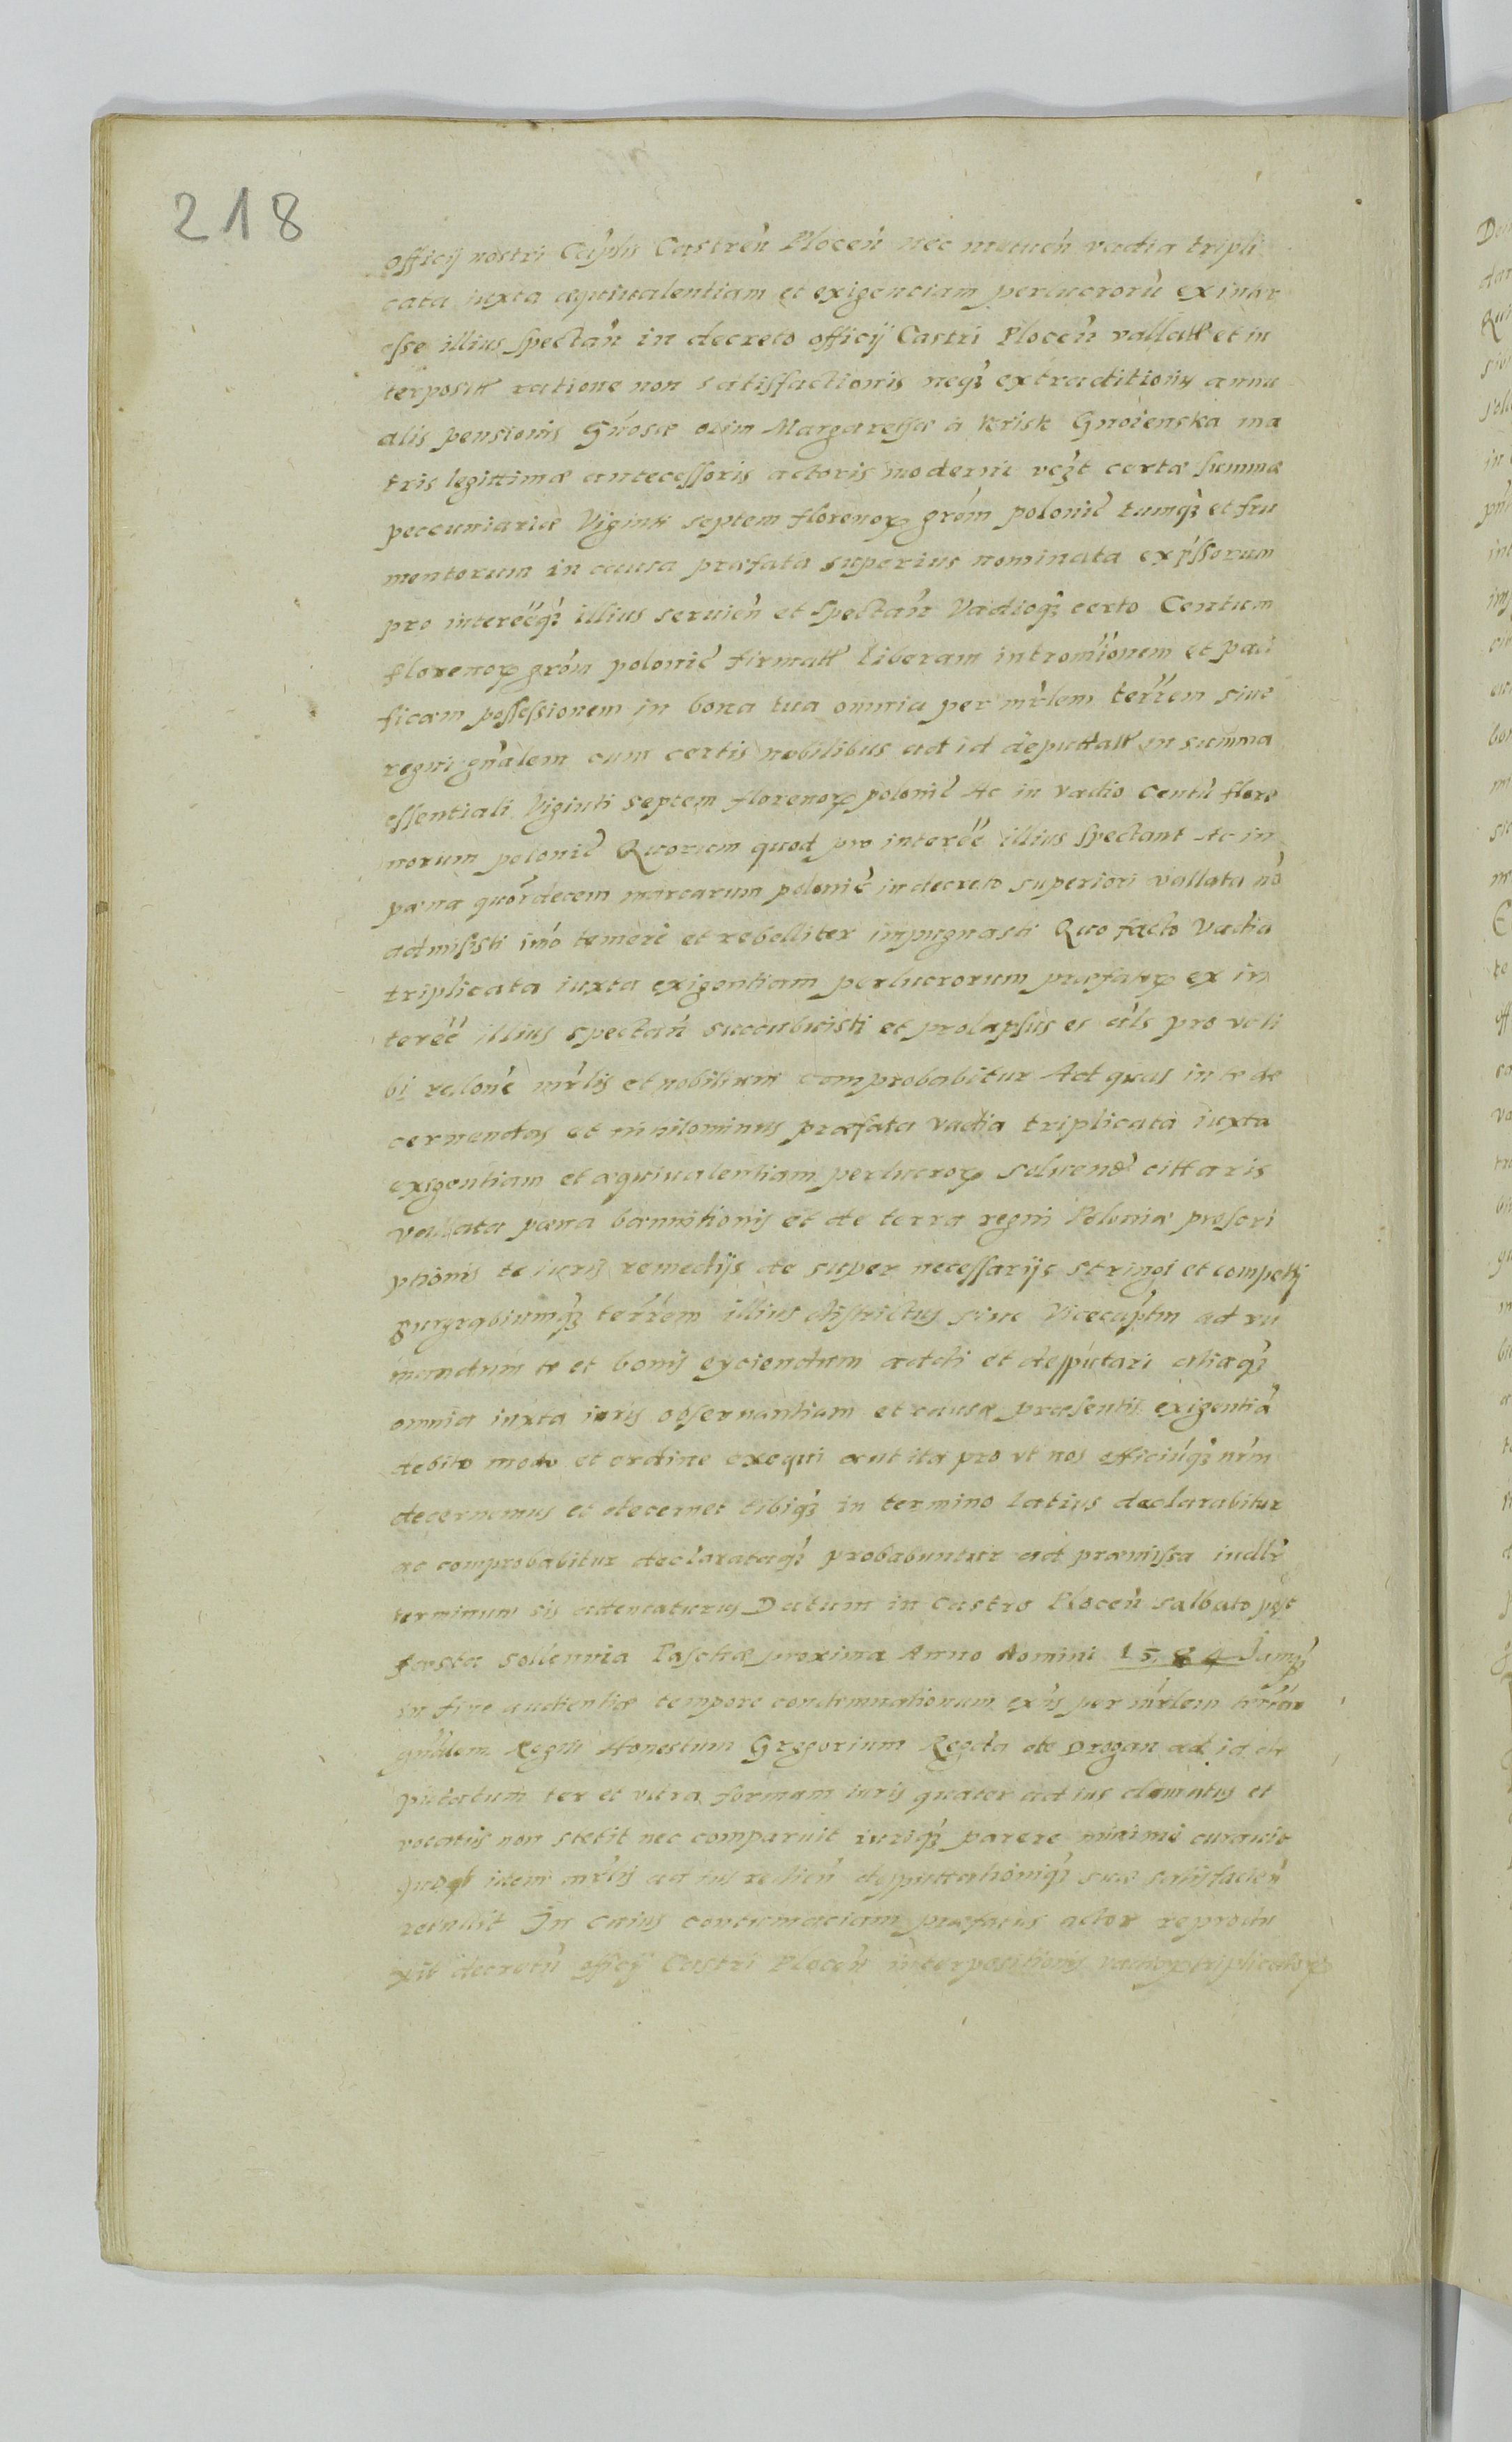 218
officij nostri Capitlis Castreñ Ploceñ nec meuch vadia tripli
cata iuxta æquiualentiam et exigenciam perlucrorũ ex inter
esse illius spectañ in decreto officij Castri Ploceñ vallatt et in
terposit ratione non satisfactionis neqȝ extraditionis annu
alis pensionis Gnosæ olim Margarethæ a Krisk Gnoienska ma
tris legittimæ antecessoris actoris moderni vcȝt certæ summæ
peccuniariæ Viginti septem florenoꝝ gróm polonic tumqȝ et fru
mentorum in causa præfata superius nominata expssorum
pro interéeqȝ illius seruień et spectañ Vadioqȝ certo Centum
florenoꝝ gróm polonic firmatt liberam intromionem et paci
ficam possessionem in bona tua omnia per mrlem terrem siue
regni gnalem cum certis nobilibus ad id deputtatt in summa
essentiali Viginti septem florenoꝝ polonic Ac in vadio centũ flore
norum polonic Quorum quod pro interée illius spectant Ac in
pæna quordecem marcarum polonic in decreto superiori vallata nõ
admisisti imo temere et rebelliter impugnasti Quo facto Vadia
triplicata iuxta exigentiam perlucrorum præfatꝝ ex in
terée illius spectañ succubuisti et prolapsus es als pro vt ti
bi rellone mrlis et nobilium comprobabitur Ad quas in te de
cernendas et nihilominus præfata vadia triplicata iuxta
exigentiam et æquiualentiam perlucroꝝ soluend cittaris
vallata pæna bannitionis et de terra regni Poloniæ proscri
ptionis te iuris remedijs de super necessarijs stringi et compelli
burgrabiumqȝ terrem illius districtus siue Vicecaptm ad ru
mandum te et bonis eyciendum addi et desputari aliaqȝ
omnia iuxta iuris obseruantiam et causæ præsentis exigentiã
debito modo et ordine exequi aut ita pro vt nos officiũqȝ nrm
decernemus et decernet tibiqȝ in termino latius declarabitur
ac comprobabitur declarataqȝ probabuntur ad præmissa iudlr
terminum sis attentaturus Datum in Castro Ploceñ sabbato post
festa sollennia Paschæ proxima Anno Domini 1584 Iamqȝ
in fine audientiæ tempore condemnationum exns per mrlem trrem
gnalem Regni Honestum Gregorium Regda de Drogan ad id de
putatum ter et vltra formam iuris quater ad ius clamatus et
vocatus non stetit nec comparuit iuriqȝ parere minime curauit
idem mrlis ad ius rediens desputtationiqȝ suæ satisfacień
retullit In cuius contumaciam præfatus actor reprodu
xit decretũ officij Castri Ploceñ interpositionis vadioꝝ triplicatoꝝ